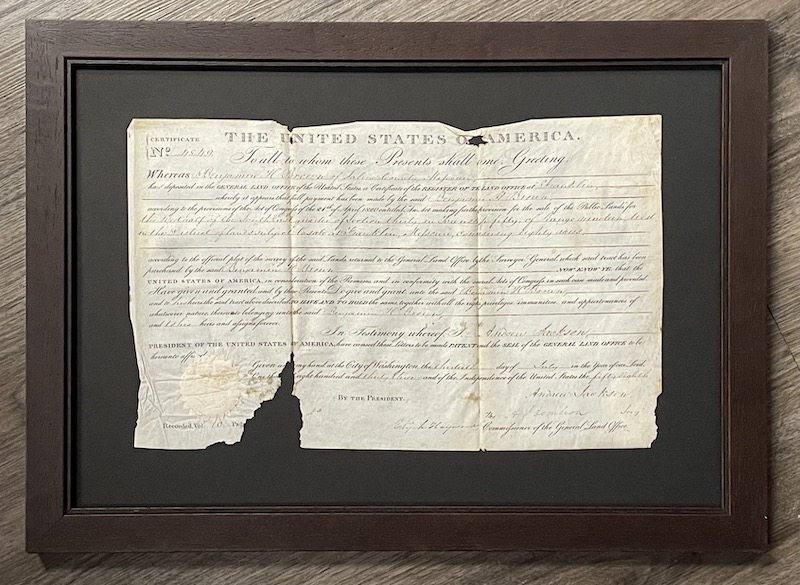 CERTIFICATE
THE UNITED STATES OF AMERICA.
No. 4849
To all to whom these Presents shall come, Greeting.
Whereas Benjamin H Brown of Saline County Missouri
has deposited in the GENERAL LAND OFFICE of the United States, a Certificate of the REGISTER OF THE LAND OFFICE at Franklin
whereby it appears that full payment has been made by the said Benjamin H Brown
according to the provisions of the Act of Congress of the 24th of April 1820, entitled An Act making further provision for the sale of the Public Lands for
the half of the quarter of Section thirty in Township fifty of Range nineteen West
in the District of lands subject to sale at Franklin, Missouri, containing eighty acres
according to the official plat of the survey of the said Lands returned to the General Land Office by the Surveyor General, which said tract has been
purchased by the said Benjamin H Brown NOW KNOW YE, that the
UNITED STATES OF AMERICA, in consideration of the Premises, and in conformity with the several Acts of Congress in such case made and provided,
Have given and granted, and by these Presents, Do give and grant, unto the said Benjamin H Brown
and to his heirs, the said tract above described, TO HAVE AND TO HOLD the same, together with all the rights, privileges, immunities, and appurtenances of
whatsoever nature, thereunto belonging, unto the said Benjamin H Brown
and to his heirs and assigns forever.
In Testimony whereof, I, Andrew Jackson
PRESIDENT OF THE UNITED STATES OF AMERICA, have caused these Letters to be made PATENT, and the SEAL of the GENERAL LAND OFFICE to be
hereunto affi
Given my hand at the City of Washington, the thirtieth day of July in the Year of our Lord
eight hundred and thirty three and of the Independence of the United States the fifty eighth
BY THE PRESIDENT: Andrew Jackson
By A. J. Donelson Sec'y
Recorded, Vol. Page
Elijah Hayward Commissioner of the General Land Office.